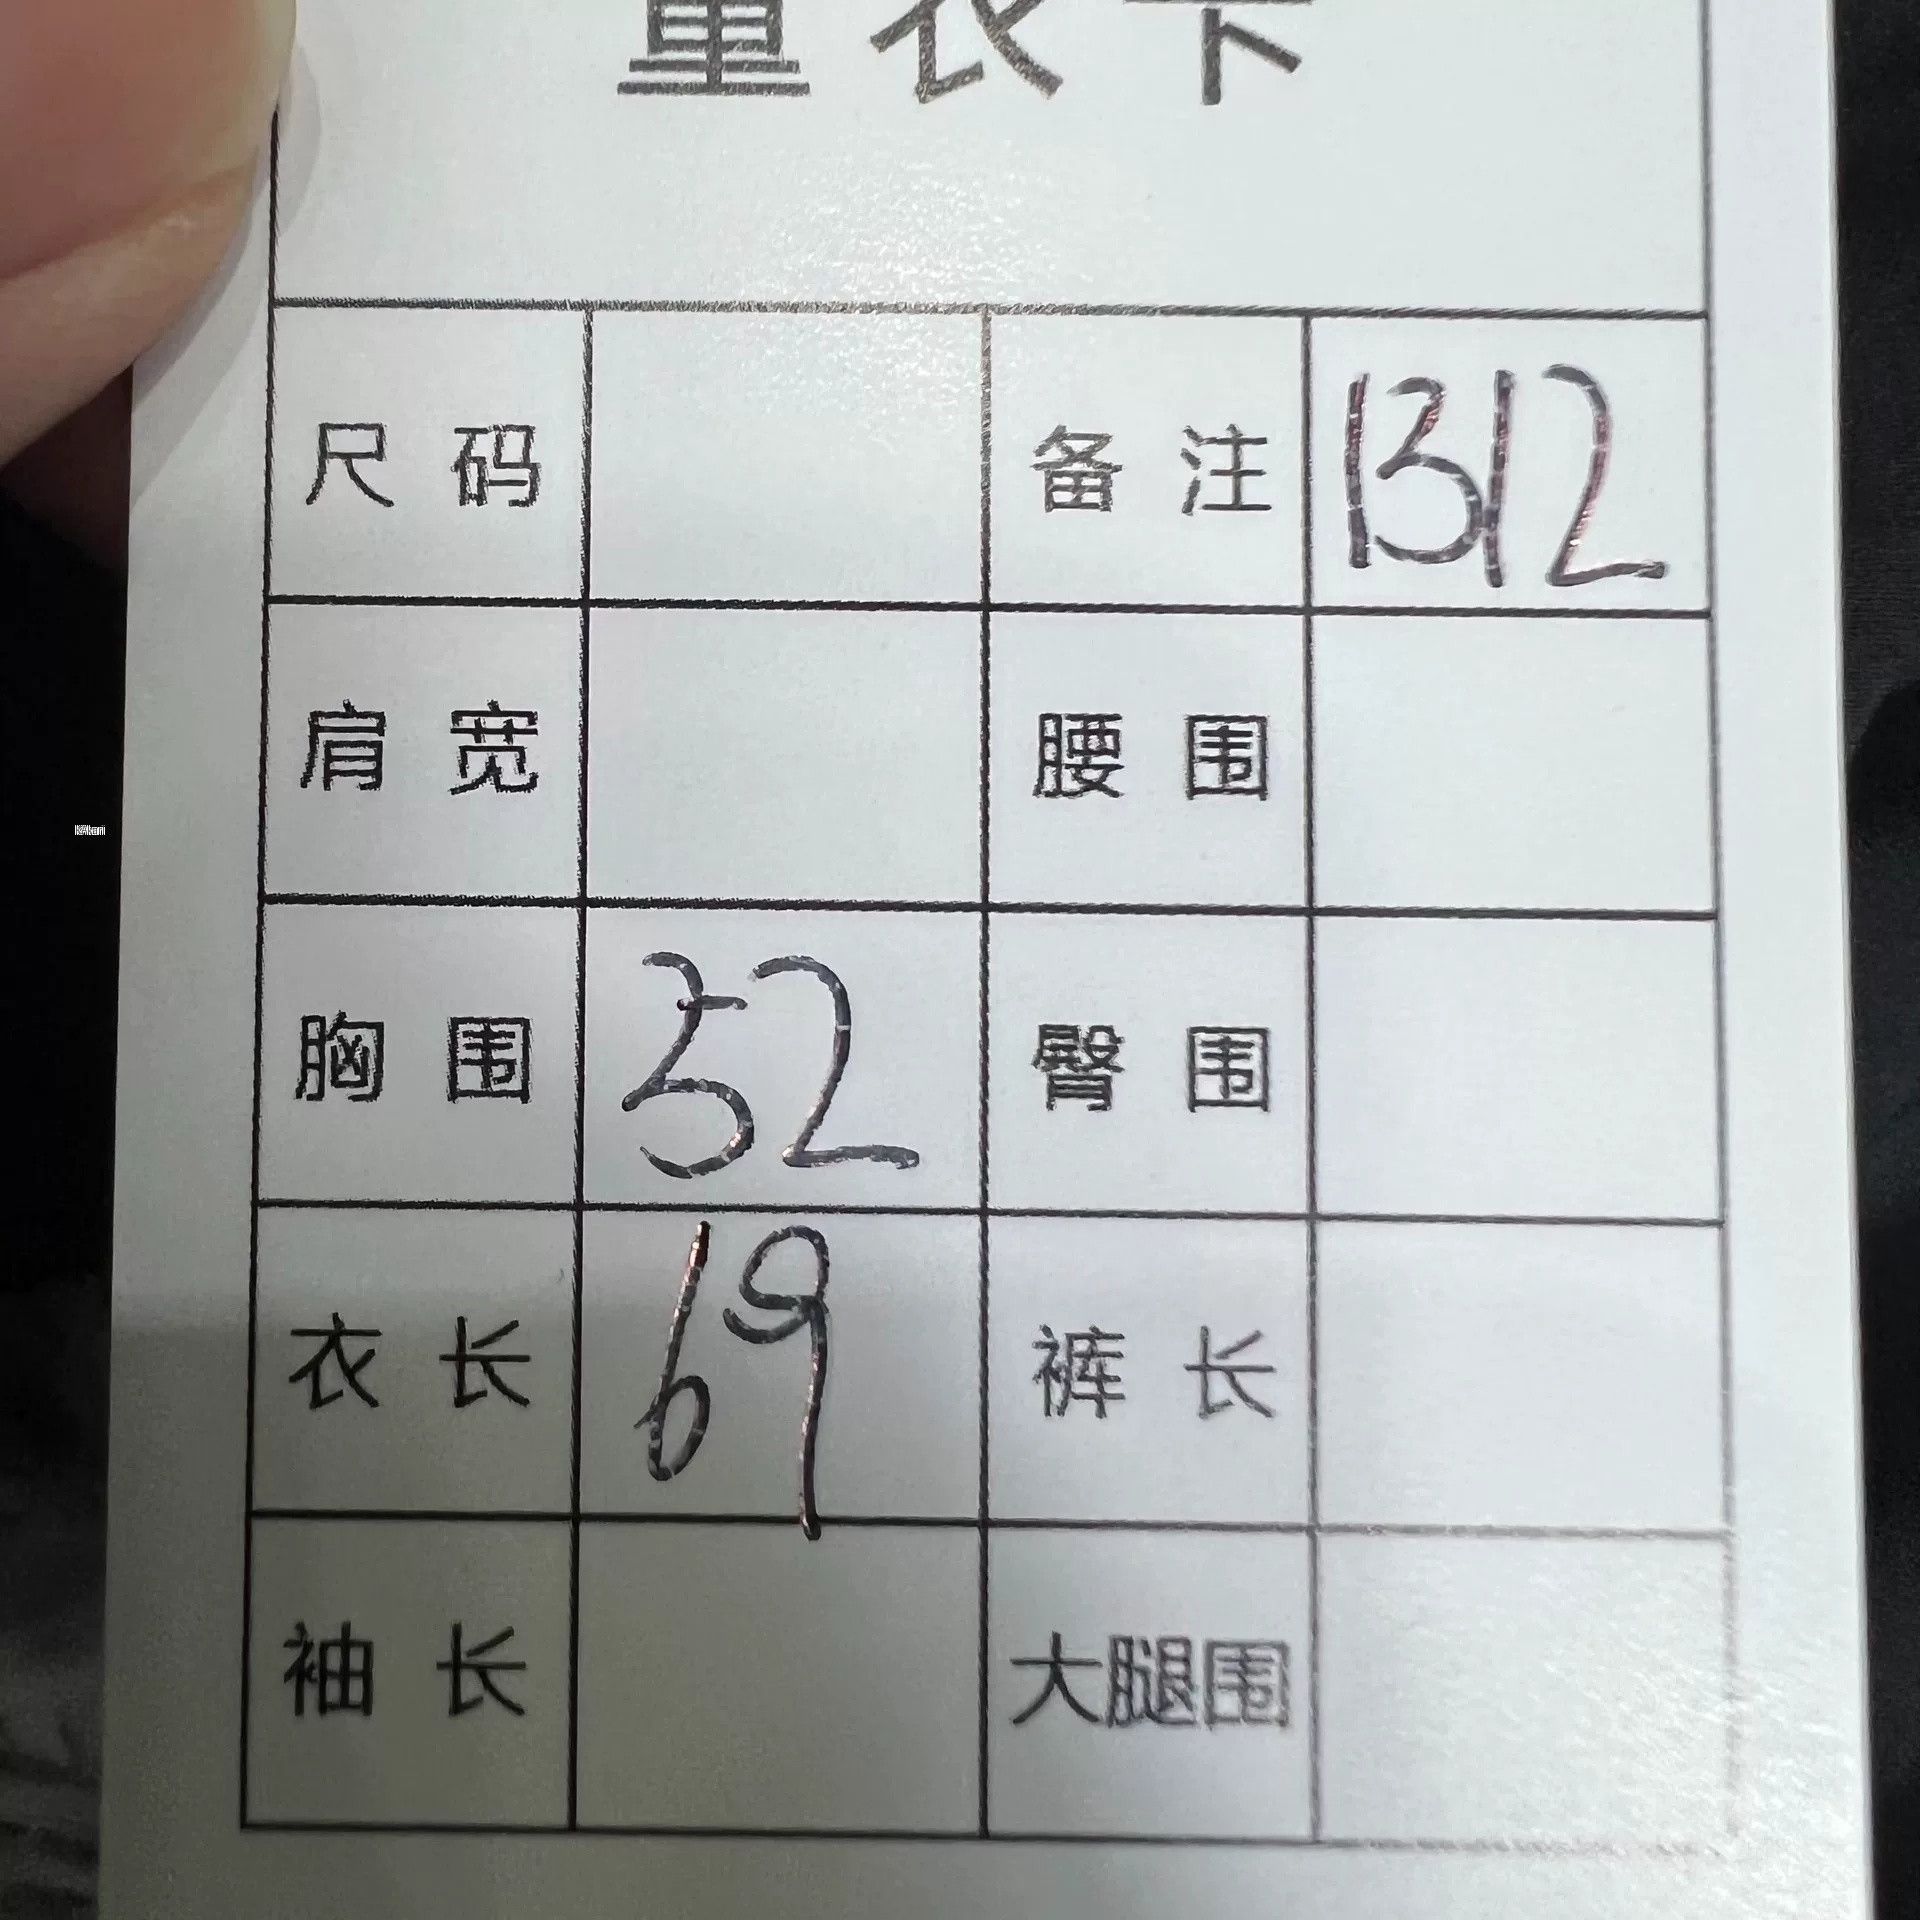 量衣卡
尺码 备注 1312
肩宽 腰围
胸围 52 臀围
衣长 69 裤长
袖长 大腿围